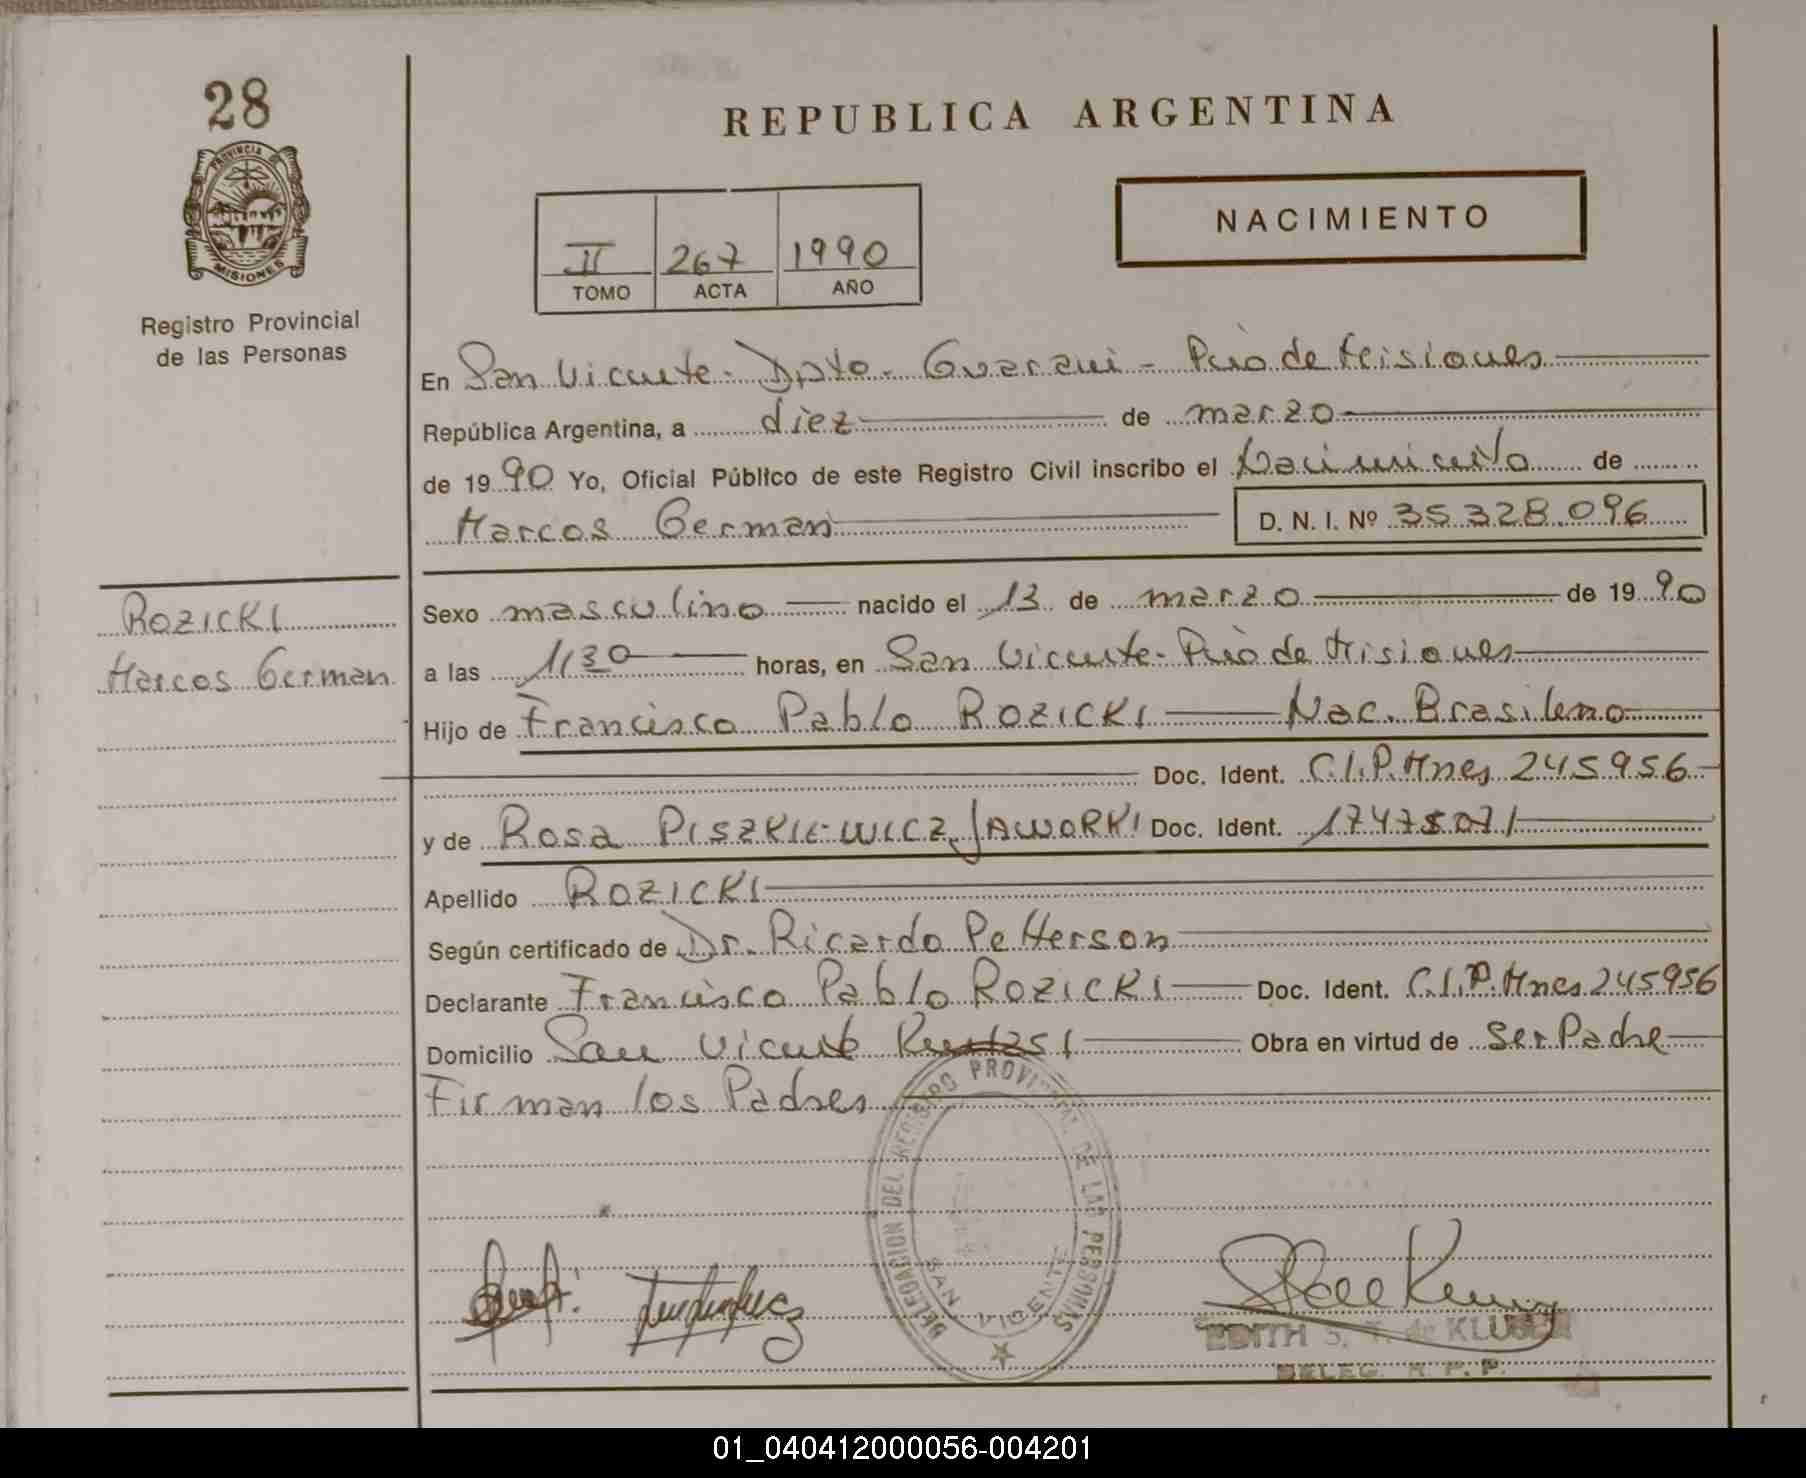 28
PROVINCIA DE
MISIONES
Registro Provincial
de las Personas
REPUBLICA ARGENTINA
NACIMIENTO
II 267 1990
TOMO ACTA AÑO
En San Vicente - Dpto. Guarani - Pcia de Misiones
República Argentina, a diez de marzo
de 1990 Yo, Oficial Público de este Registro Civil inscribo el Nacimiento de
Marcos German D. N. I. Nº 35.328.096
ROZICKI
Marcos German
Sexo masculino nacido el 13 de marzo de 1990
a las 1,30 horas, en San Vicente - Pcia de Misiones
Hijo de Francisco Pablo ROZICKI Nac. Brasileno
Doc. Ident. C.I.P. Mnes 245956
y de Rosa PISZKIEWICZ JAWORKI Doc. Ident. 17475071
Apellido ROZICKI
Según certificado de Dr. Ricardo Petterson
Declarante Francisco Pablo ROZICKI Doc. Ident. C.I.P. Mnes 245956
Domicilio San Vicente Obra en virtud de Ser Padre
Firman los Padres
DELEGACION DEL REGISTRO PROVINCIAL DE LAS PERSONAS
SAN VICENTE
EDITH S. T. de KLUBER
DELEG. R. P. P.
01_040412000056-004201